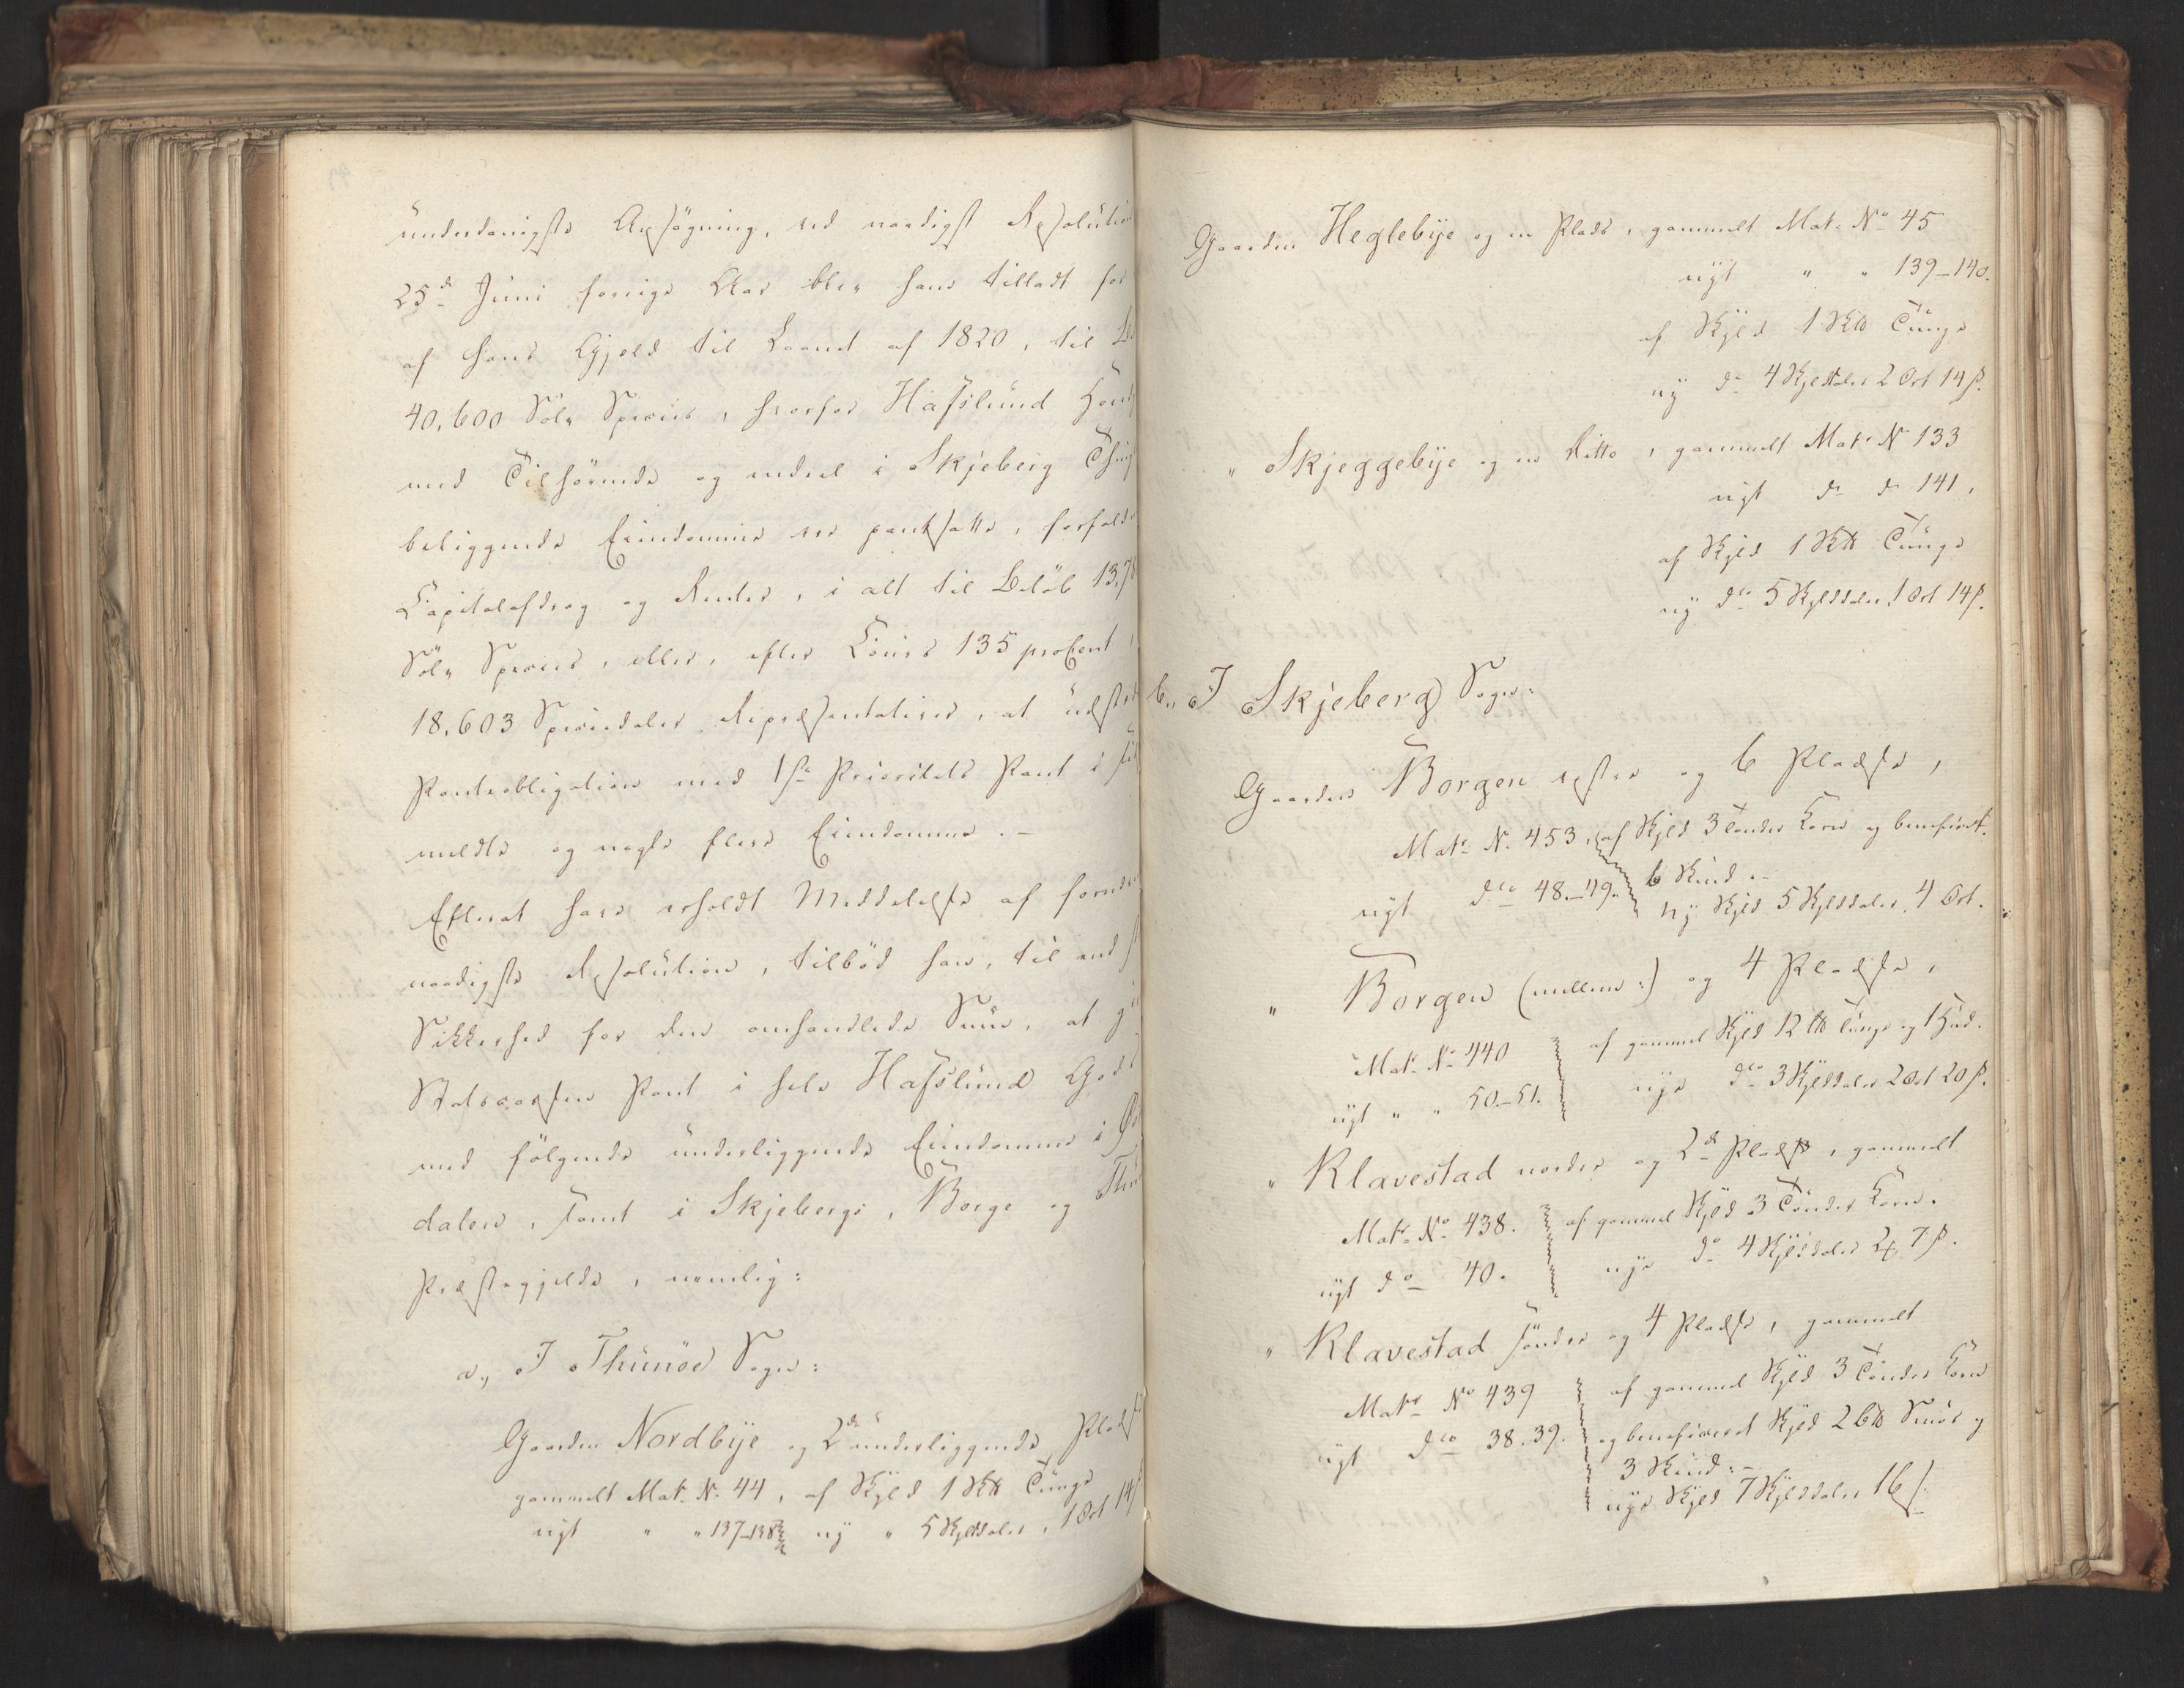 underdanigste Ansøgning, ved naadigst Resolution
25de Juni forrige Aar blev ham tilladt for
af hans Gjeld til Laanet af 1820, til
40,600 Sølv Species, hvorfor Hafslund Hoved
med Tilhørende og endeel i Skjeberg Thing
beliggende Eiendomme ere pantsatte, forfaldne
Capitalafdrag og Renter, i alt til Beløb 13,78
Sølv Species, eller, efter Cours 135 procent,
18,603 Speciedaler Repræsentativer, at udstede
Panteobligation med 1ste Prioritets Pant i
meldte og nogle flere Eiendomme.-
Efterat have erholdt Meddelelse af fornævnte
naadigste Resolution, tilbød han, til end
Sikkerhed for den omhandlede Sum, at give
Statscassen Pant i hele Hafslund Gods
med følgende underliggende Eiendomme i
dalen, samt i Skjebergs, Borge og Thun
Præstegjelde, nemlig:
a., I Thunøe Sogn:
Gaarden Nordbÿe og 2de underliggende Pladse
gammelt Mat. No. 44, af Skyld 1 Sk℔ Tunge
nÿt " " 137-138 nÿ " 5 Skylddaler, 1 Ort 14 ß
Gaarden Heglebÿe og en Plads, gammelt Mat. No 45
nÿt " " 139-140.
af Skyld 1 Sk℔ Tunge
nÿ do 4 Skylddaler 2 Ort 14 ß.
" Skjeggebÿe og en ditto, gammelt Matr No 133
nÿt do do 141,
af Skyld 1 Sk℔ Tunge
nÿ do 5 Skylddaler, 1 Ort 14 ß.
b., I Skjeberg Sogn:
Gaarden Borgen østre og 6 Pladse,
Matr. No. 453, af Skyld 3 Tønder Korn og beneficeret.
6 Skind.-
nÿt dto 48.-49. nÿ Skyld 5 Skylddaler, 4 Ort.
" Borgen (mellem:) og 4 Pladse,
Matr. No. 440 af gammel Skyld 12 ℔ Tunge og 1 Hud.
nÿt " " 50.-51. nye dto 3 Skylddaler 2 Ort 20 ß.
" Klavestad nordre og 2de Pladse, gammelt
Matr. No. 438. af gammel Skyld 3 Tønder Korn.
nÿt do 40. nye do 4 Skylddaler 2 Ort 7 ß.
" Klavestad søndre og 4 Pladse, gammelt
Matr. No 439 af gammel Skyld 3 Tønder Korn
nÿt dto 38.39. og beneficeret Skyld 2 B℔ Smør og
3 Skind.-
nye Skyld 7 Skylddaler 16 ß.